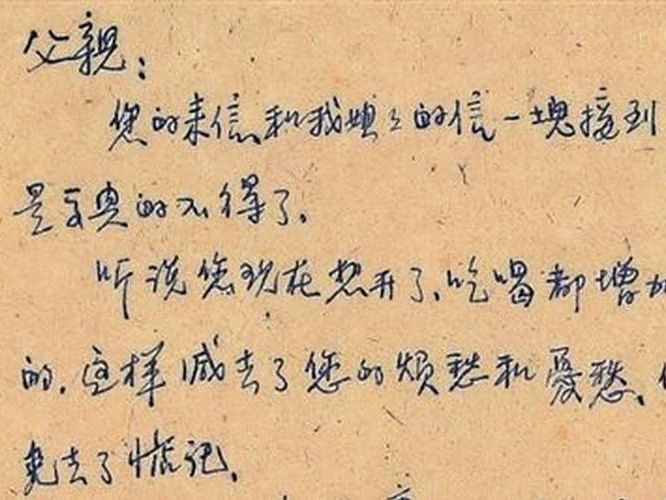 父親：
您的来信、和我媳々的信一塊接到
是高興的不得了。
听说您现在想开了、吃喝都增加
的，这样减去了您的烦愁和憂愁、
免去了惦记。